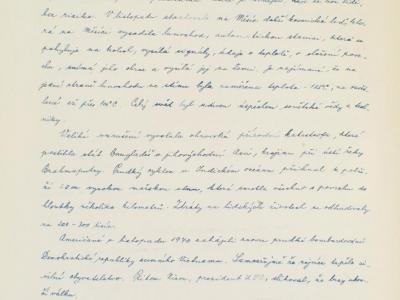 bez rizika. V listopadu startovala na Měsíc další kosmická loď, kte-
rá na Měsíc vysadila lunochod, automatickou stanici, která se
pohybuje na kolech, vysílá signály, údaje o teplotě, o složení povr-
chu, snímá jeho obraz a vysílá jej na Zemi. Je zajímavé, že na
jedné straně lunochodu ve stínu byla naměřena teplota - 125°C, na osvět-
lené až přes 100°C. Celý svět byl udiven úspěchem sovětské vědy a tech-
niky.
Veliké vzrušení vyvolala obrovská přírodní katastrofa, která
postihla stát Bangladéš v jihovýchodní Asii, krajinu při ústí řeky
Brahmaputry. Prudký cyklon v Indickém oceánu přihnal k pobř.
až 10 m vysokou mořskou vlnu, která smetla všechno s povrchu do
hloubky několika kilometrů. Ztráty na lidských životech se odhadovaly
na 200 - 300 tisíc.
Američané v listopadu 1970 zahájili znovu prudké bombardování
Demokratické republiky severního Vietnamu. Samozřejmě že nejvíce trpělo ci-
vilní obyvatelstvo. Nixon, president USA, sliboval, že brzy skon-
čí válku.